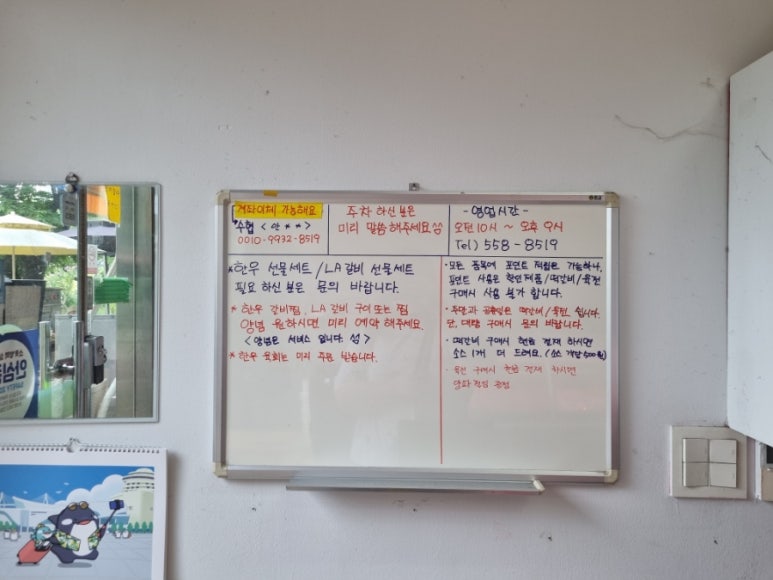 계좌이체 가능해요
*수협 < 안 * * >
0010-9932-8519
주차 하신 분은
미리 말씀 해주세요
- 영업시간 -
오전 10시 ~ 오후 9시
Tel) 558-8519
*한우 선물세트 / LA갈비 선물세트
필요 하신 분은 문의 바랍니다.
* 한우 갈비찜, LA 갈비 구이 또는 찜
양념 원하시면 미리 예약 해주세요.
< 양념은 서비스 입니다 >
* 한우 육회는 미리 주문 받습니다.
· 모든 품목에 포인트 적립은 가능하나,
포인트 사용은 할인제품/떡갈비/육전
구매시 사용 불가 합니다.
· 주말과 공휴일은 떡갈비/육전 쉽니다.
단, 대량 구매시 문의 바랍니다.
· 떡갈비 구매시 현금 결제 하시면
소스 1개 더 드려요. / 소스 개당 500원
· 육전 구매시 현금 결제 하시면
안심